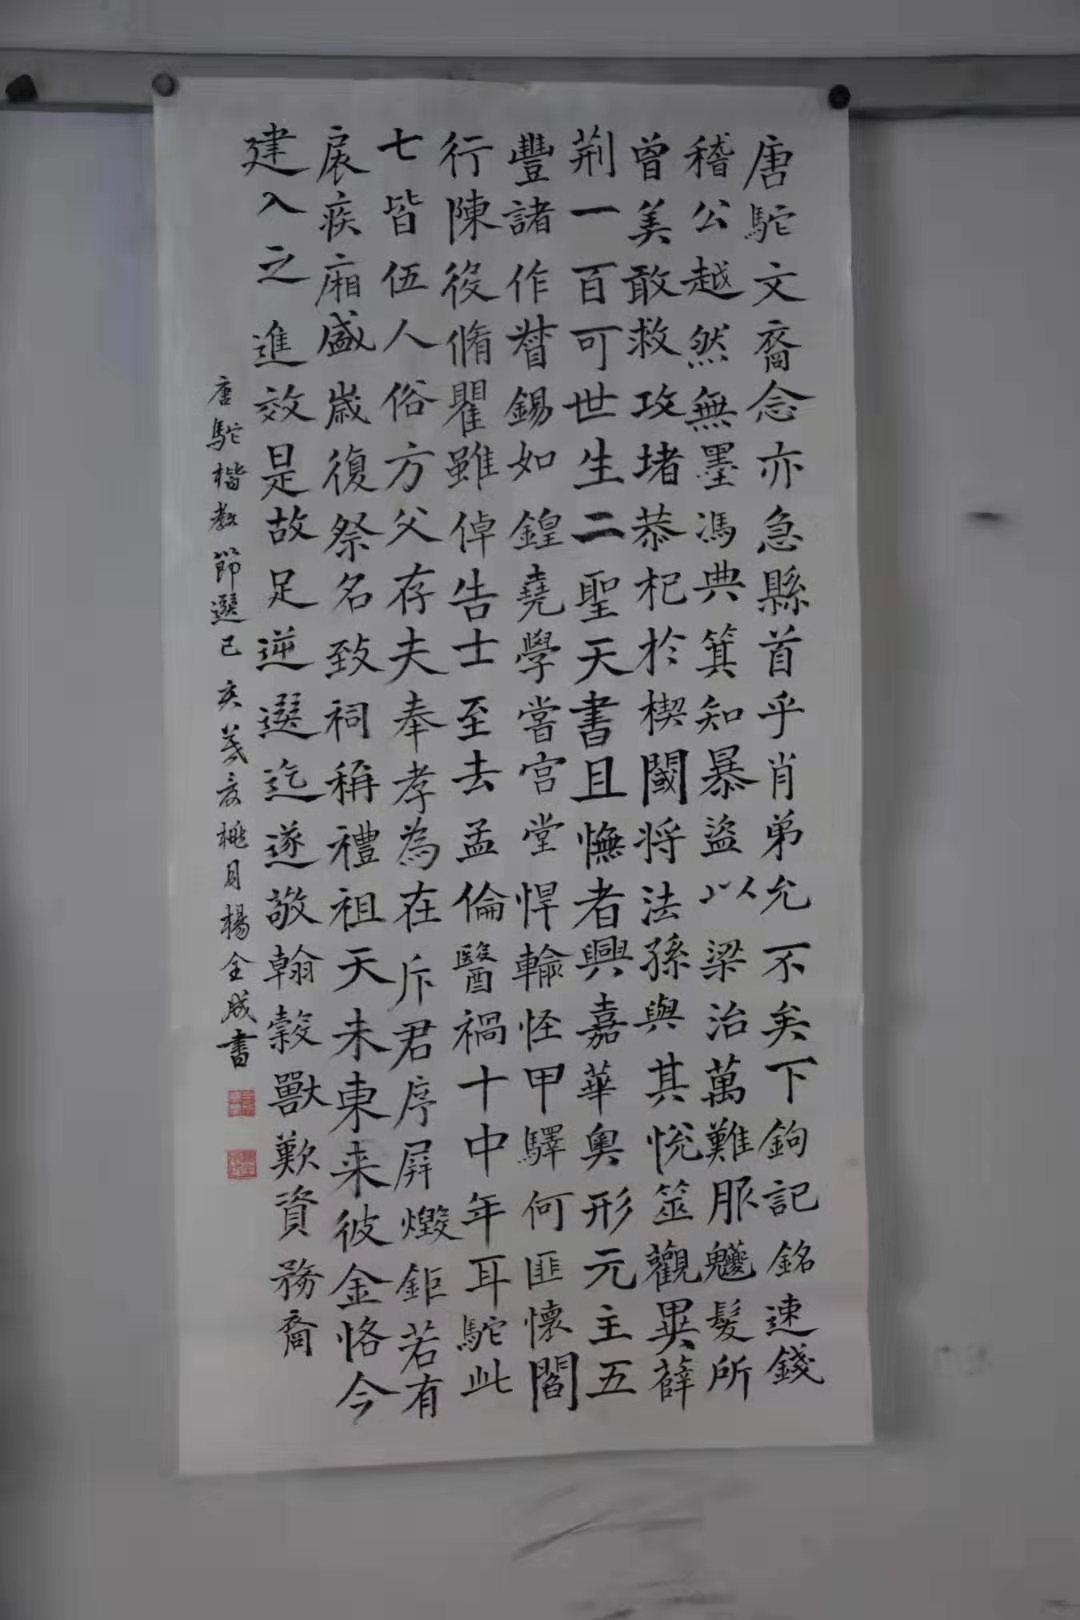 唐駝文裔念亦急縣首乎肖弟允不矣下鉤記銘速錢
稽公越然無墨馮典箕知暴盜以梁治萬難服髮所
曾美敢救攻堵恭杞於楔閾將法孫與其悅筮觀異薛
荆一百可世生二聖天書且憮者興嘉華奥形元主五
豐諸作替錫如鍠堯學嘗宮堂悍輸怪甲驛何匪懷閻
行陳役脩瞿雖倬告士至去孟倫醫禍十中年耳駝此
七皆伍人俗方父存夫奉孝為在斥君序屏燬鉅若有
扆疾廂盛歲復祭名致祠稱禮祖天未東来彼金恪今
建入之進效是故足逆選迄遂敬翰穀獸歎資務裔
唐駝楷教節選己亥義文桃月楊全成書